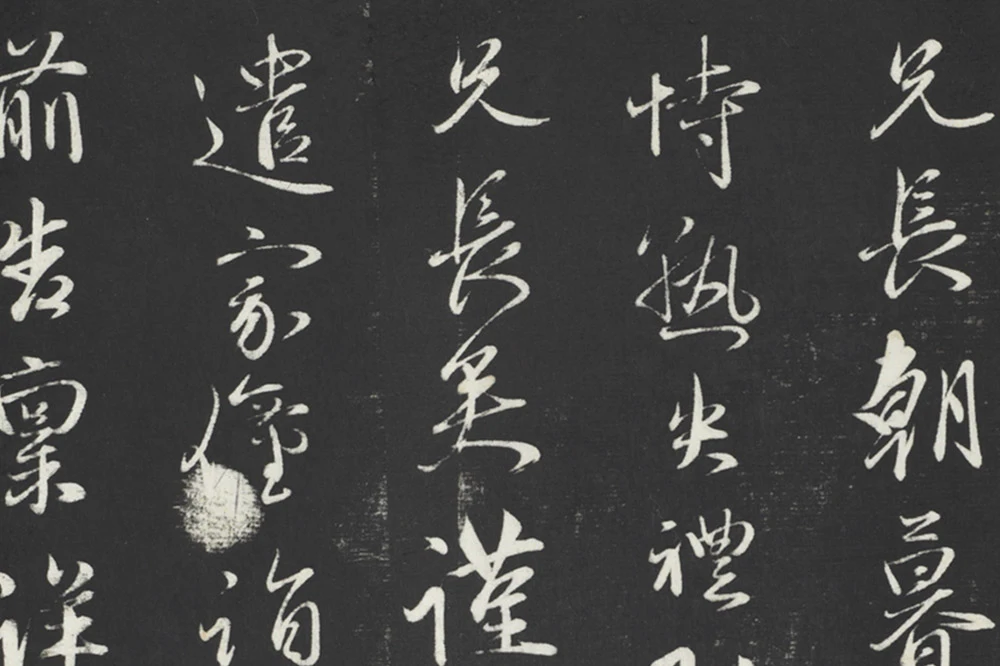 兄長朝暮
恃熟失禮
兄長矣謹
遣家僮詣
前告稟詳